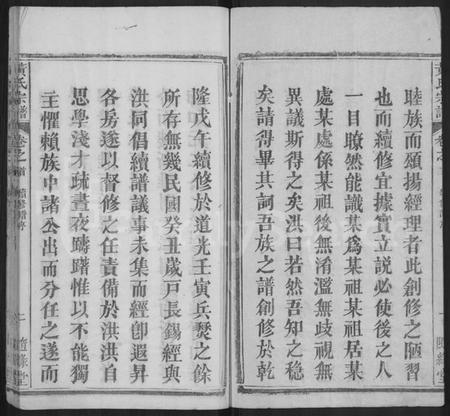 睦族而頌揚經理者此創修之陋習
也而續修宜據實立説必使後之人
一目瞭然能識某爲某祖某祖居某
處某處係某祖後無淆濫無歧視無
異議斯得之矣洪曰若然吾知之稳
矣請得畢其詞吾族之譜創修於乾
隆戊午續修於道光壬寅兵燹之餘
所存無幾民國癸丑歲戸長錫經與
洪同倡續譜議事未集而經卽遐昇
各房遂以督修之任責備於洪洪自
思學淺才疏晝夜躊躇惟以不能獨
主懼賴族中諸公出而分任之遂而
黃氏宗譜
卷之首
續修譜序